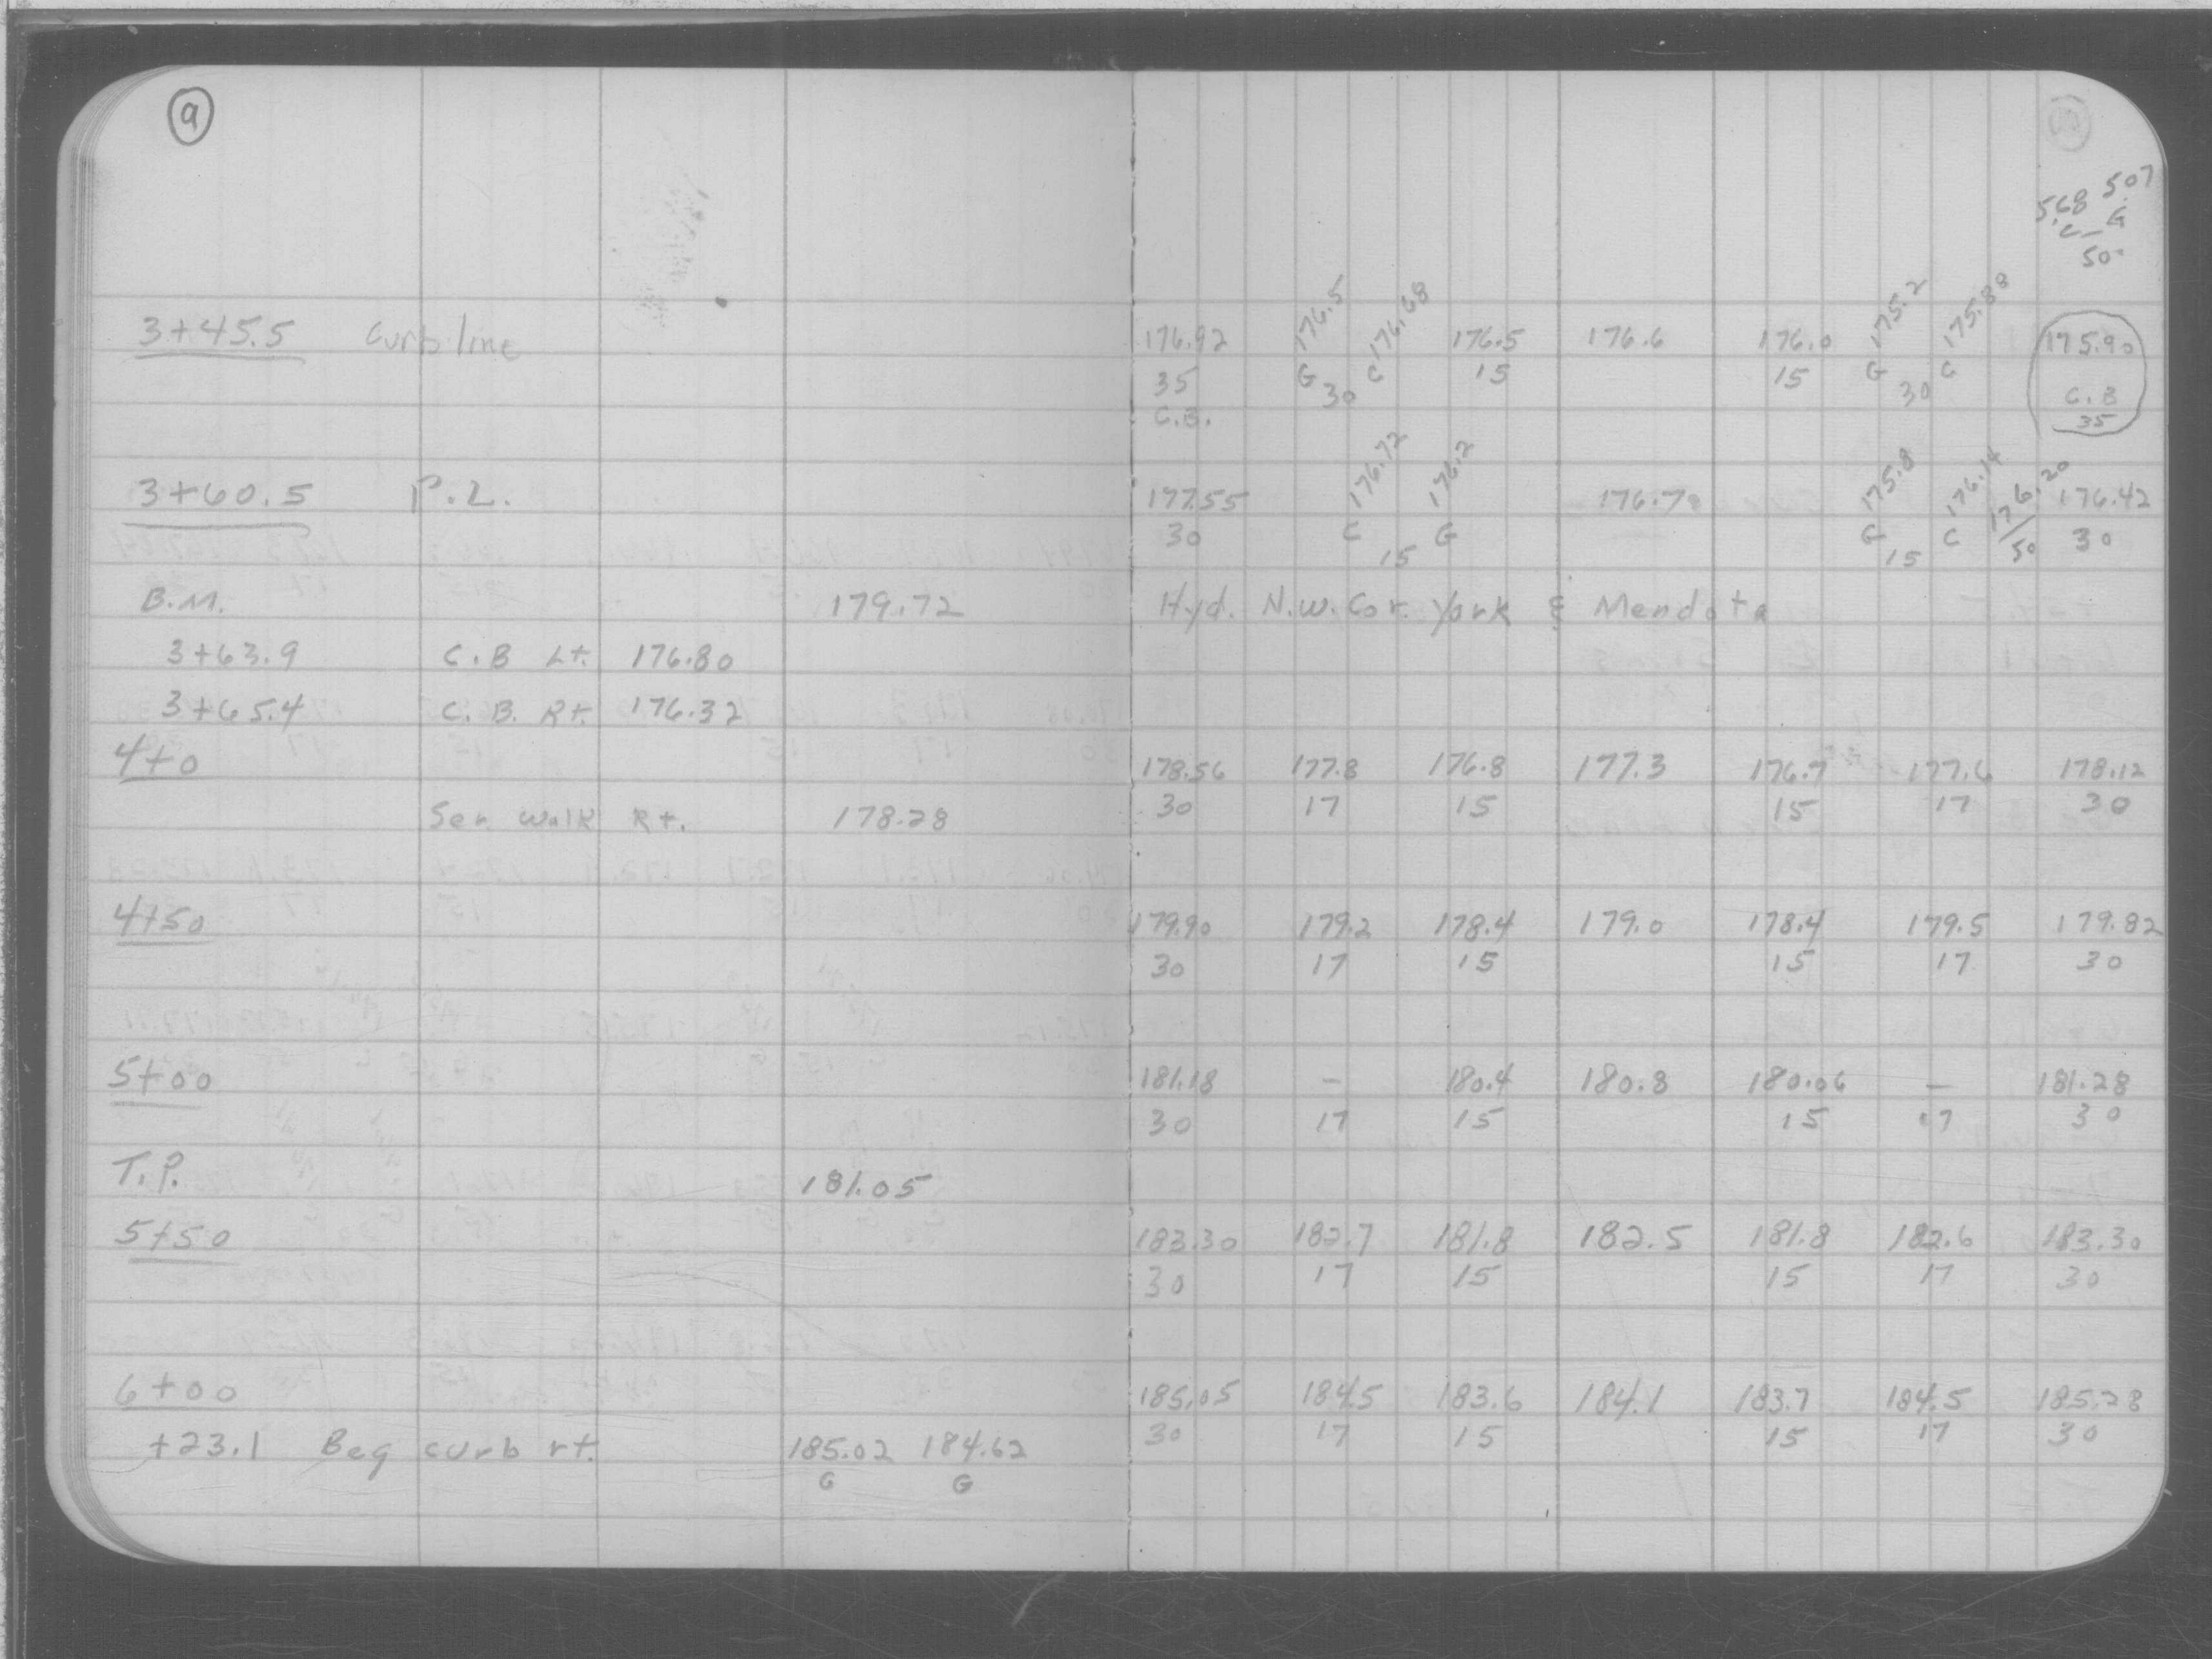 9
5.68 5.07
C - G
50
3+45.5 Curb line 176.92 176.5 176.68 176.5 176.6 176.0 175.2 175.88 175.90
35 G 30 C 15 15 G 30 C C.B
C.B. 35
3+60.5 P.L. 177.55 176.72 176.2 176.7 175.8 176.14 176.20 176.42
30 C 15 G G 15 C 50 30
B.M. 179.72 Hyd. N.W. Cor. York & Mendota
3+63.9 C.B Lt. 176.80
3+65.4 C.B. Rt. 176.32
4+0 178.56 177.8 176.8 177.3 176.7 177.6 178.12
30 17 15 15 17 30
Ser. Walk Rt. 178.28
4+50 179.90 179.2 178.4 179.0 178.4 179.5 179.82
30 17 15 15 17 30
5+00 181.18 - 180.4 180.8 180.06 - 181.28
30 17 15 15 17 30
T.P. 181.05
5+50 183.30 182.7 181.8 182.5 181.8 182.6 183.30
30 17 15 15 17 30
6+00 185.05 184.5 183.6 184.1 183.7 184.5 185.28
30 17 15 15 17 30
+23.1 Beg curb rt. 185.02 184.62
G G